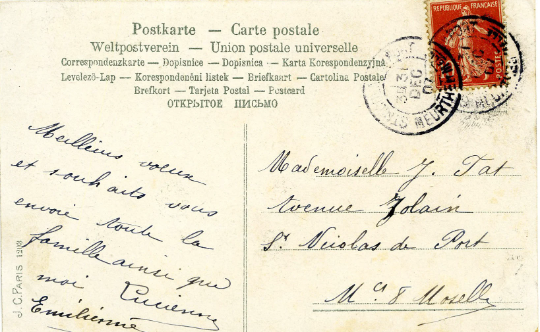 Postkarte — Carte postale
Weltpostverein — Union postale universelle
Correspondenzkarte — Dopisnice — Dopisnica — Karta Korespondenzyjna
Levelező-Lap — Korespondenční listek — Briefkaart — Cartolina Postale
Brefkort — Tarjeta Postal — Postcard
ОТКРЫТОЕ ПИСЬМО
REPUBLIQUE FRANÇAISE
POSTES
DEC
MEURTHE
Meilleurs voeux
et souhaits vous
envoie toute la
famille ainsi que
moi Lucienne
Emilienne
J.C. PARIS
Mademoiselle J. Tat
Avenue Jolain
St Nicolas de Port
Mthe & Moselle